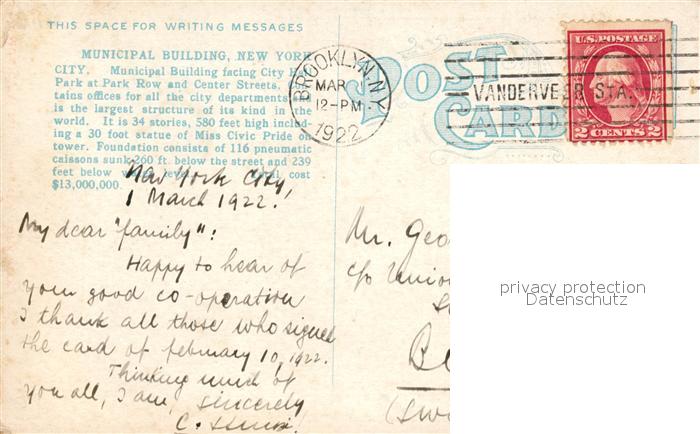 THIS SPACE FOR WRITING MESSAGES
MUNICIPAL BUILDING, NEW YORK
CITY. Municipal Building facing City
Park at Park Row and Center Streets.
tains offices for all the city departments
is the largest structure of its kind in the
world. It is 34 stories, 580 feet high includ-
ing a 30 foot statue of Miss Civic Pride on
tower. Foundation consists of 116 pneumatic
caissons sunk 260 ft. below the street and 239
feet below cost
$13,000,000.
New York City,
1 March 1922.
My dear "family":
Happy to hear of
your good co-operation
I thank all those who signed
the card of february 10, 1922.
Thinking much of
you all, I am, sincerely
C.
BROOKLYN, N.Y.
MAR
12-PM
1922
POST
CARD
VANDERVEER STA.
U.S. POSTAGE
2 CENTS 2
Mr. Geo
c/o Union
Be
(Sw
privacy protection
Datenschutz